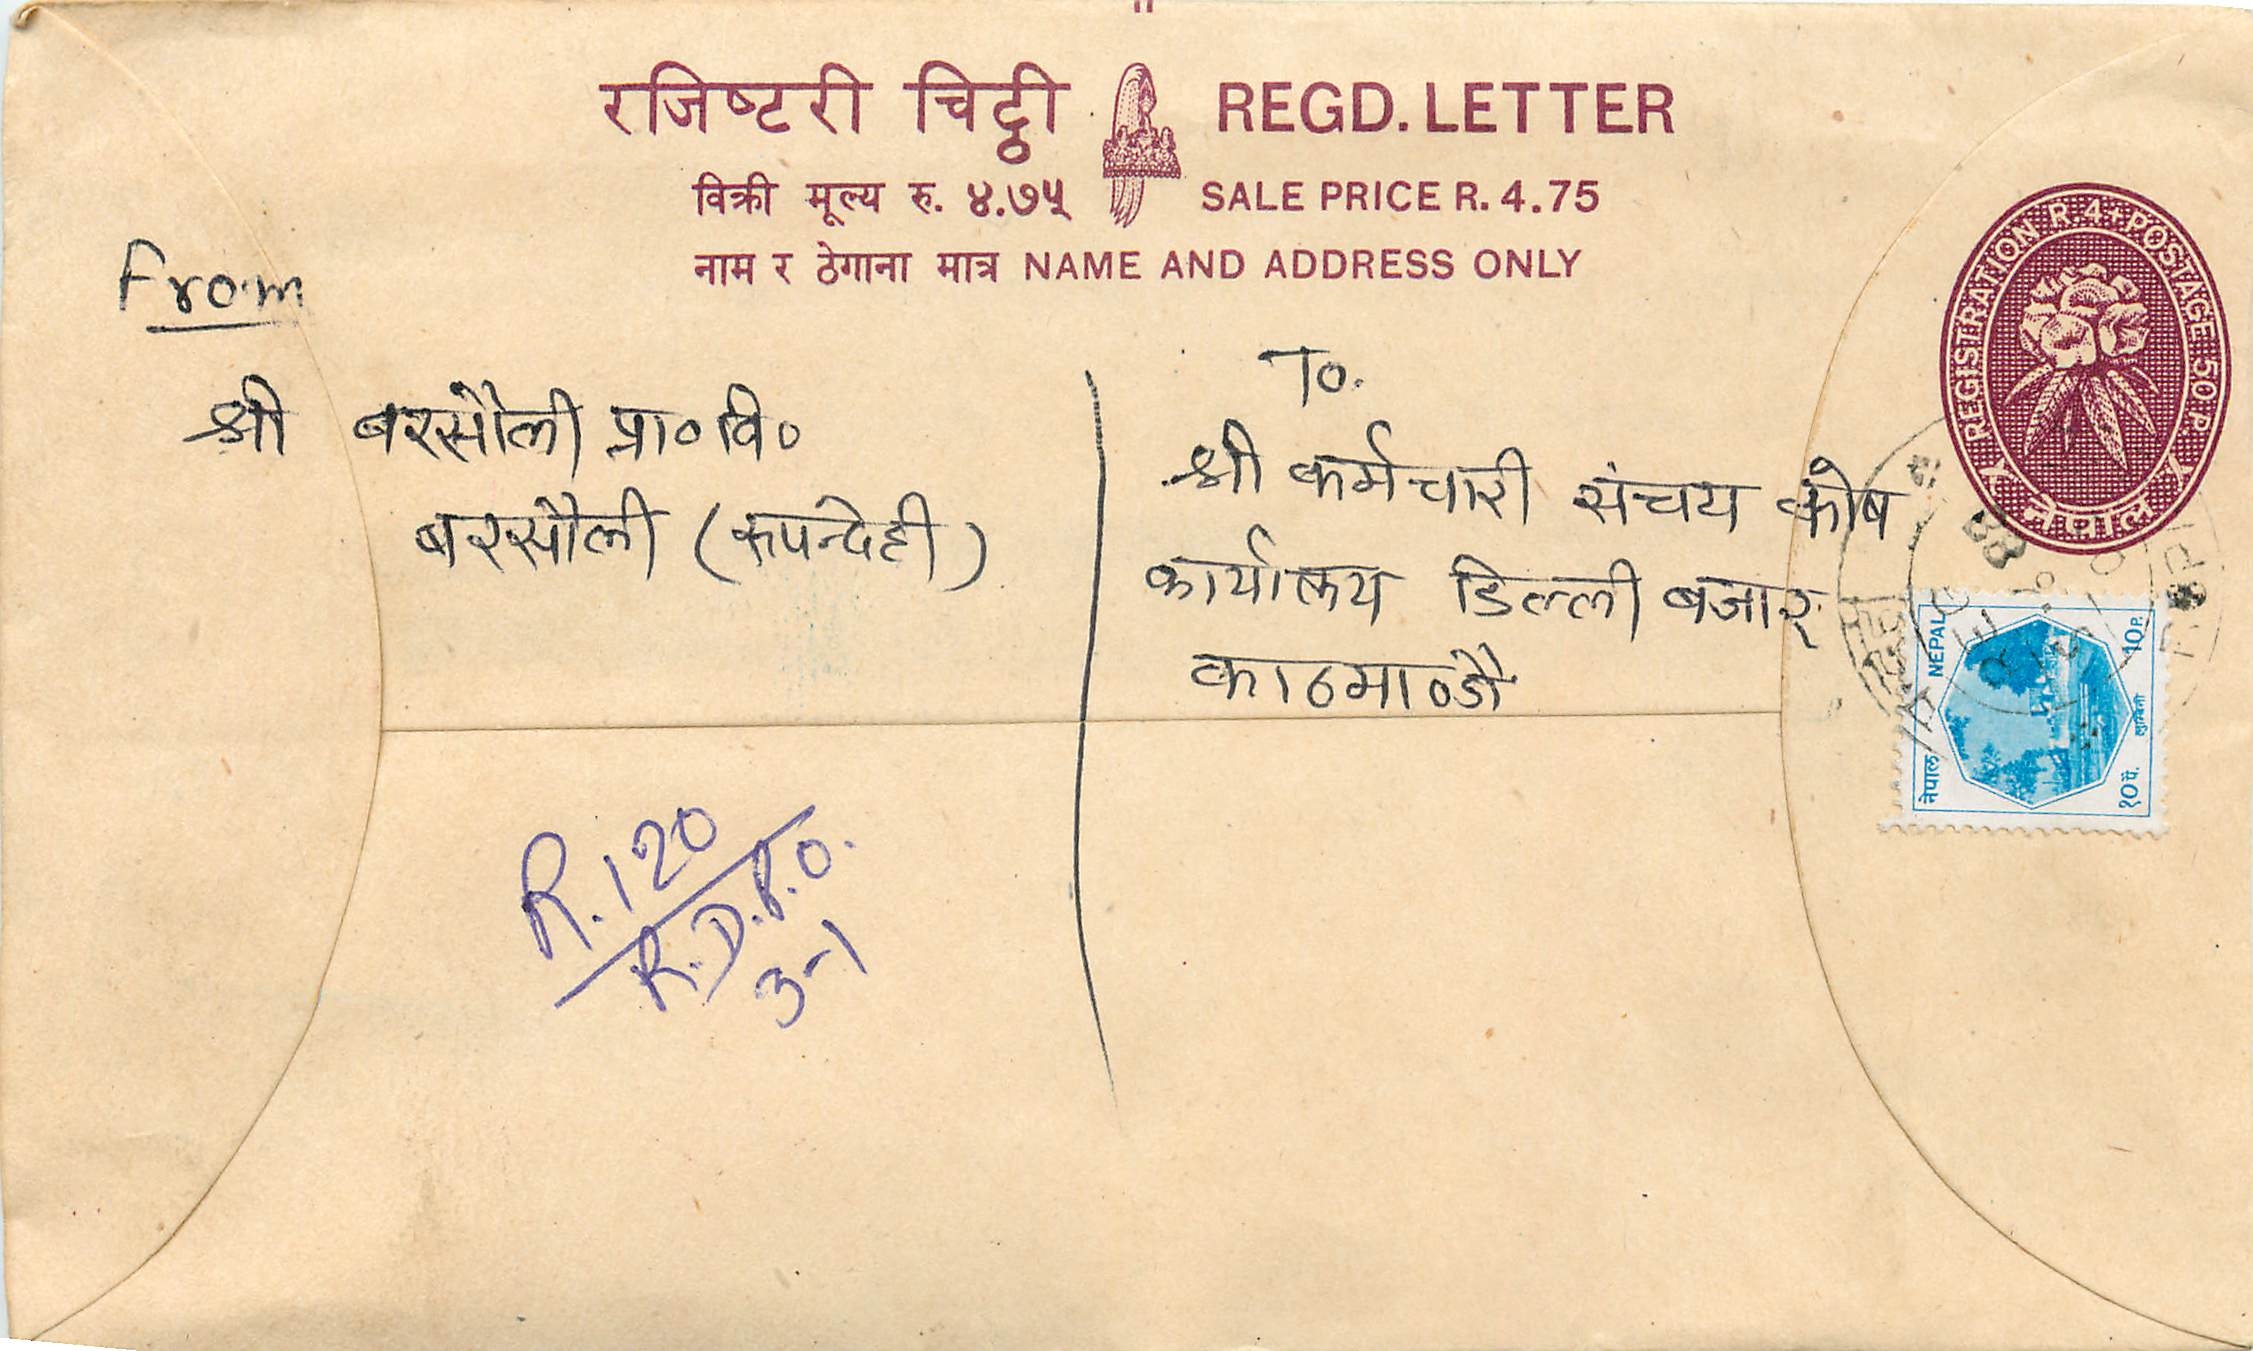 रजिष्टरी चिट्ठी REGD. LETTER
विक्री मूल्य रु. ४.७५ SALE PRICE R. 4.75
नाम र ठेगाना मात्र NAME AND ADDRESS ONLY
REGISTRATION R.4+POSTAGE 50 P.
नेपाल
From
श्री बरसौली प्रा० वि०
बरसौली (रुपन्देही)
To.
श्री कर्मचारी संचय कोष
कार्यालय डिल्ली बजार
काठमाण्डौ
नेपाल NEPAL
१० पै. लुम्बिनी 10 P.
R. 120
R.D.P.O.
3-1